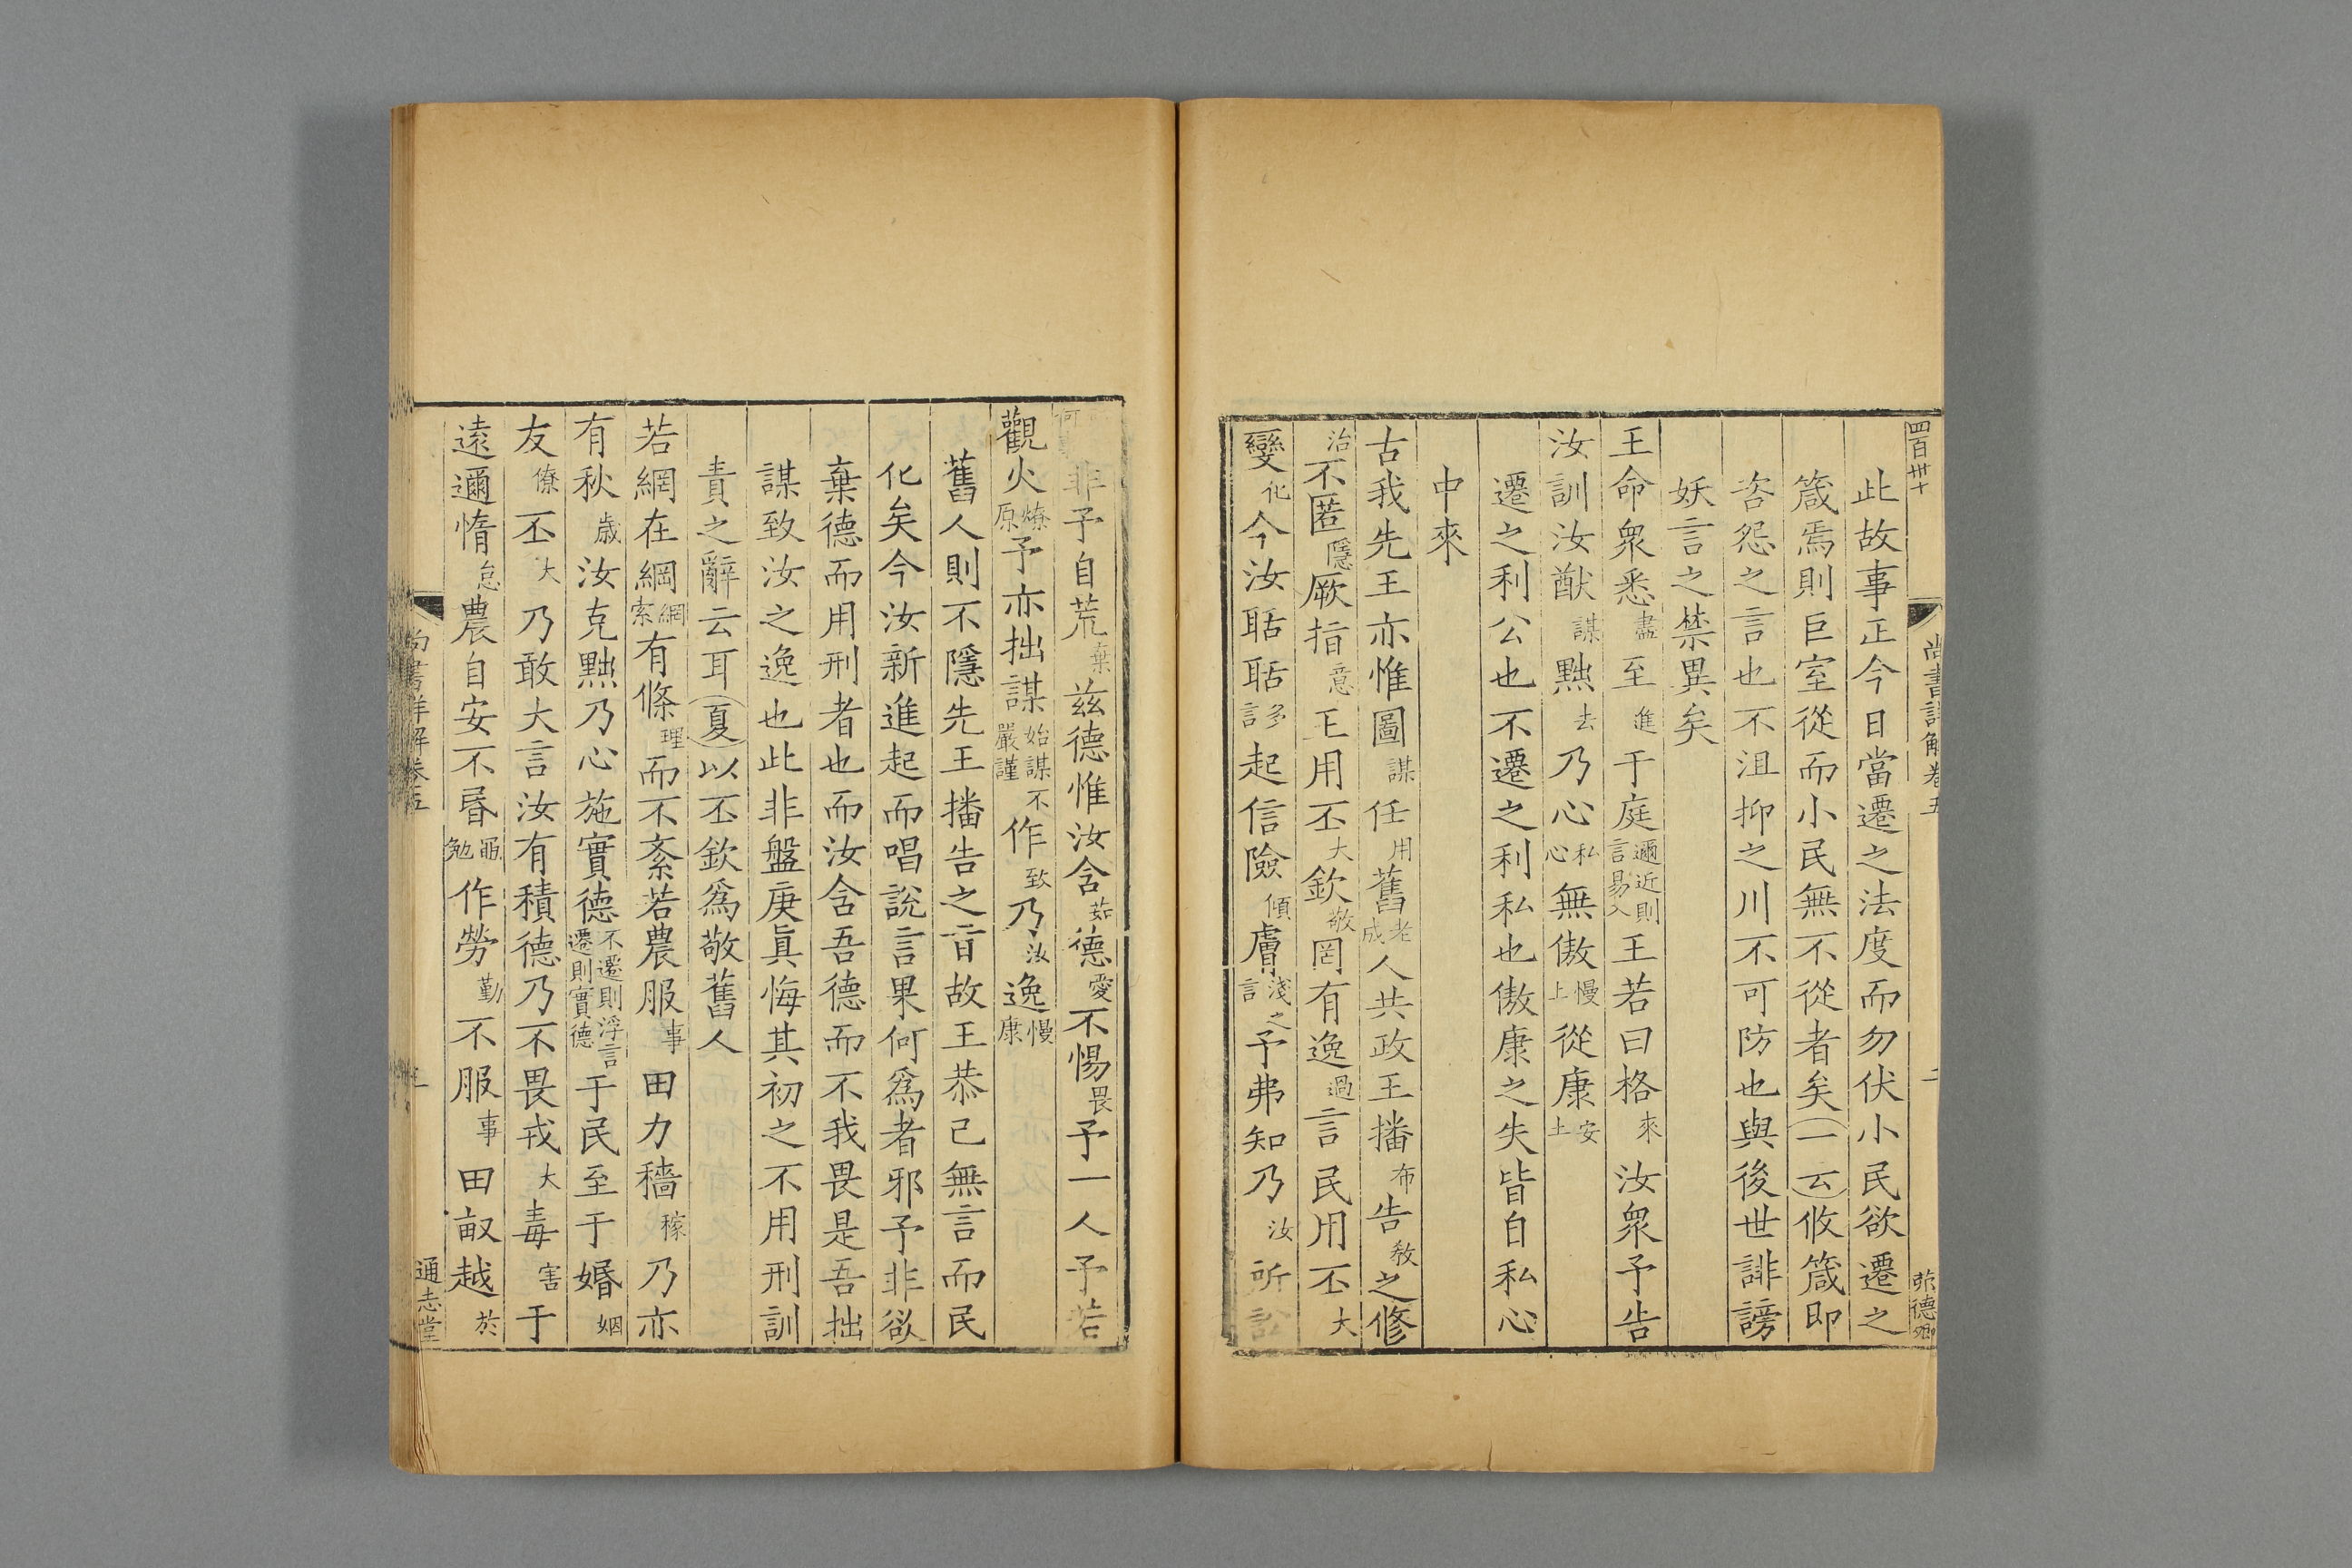 四百卅十
尚書詳解卷五
二
德卿
此故事正今日當遷之法度而勿伏小民欲遷之
箴焉則巨室從而小民無不從者矣一云攸箴即
咨怨之言也不沮抑之川不可防也與後世誹謗
妖言之禁異矣
王命衆悉盡至進于庭邇近則言易入王若曰格來汝衆予告
汝訓汝猷謀黜去乃心私心無傲慢上從康安土
遷之利公也不遷之利私也傲康之失皆自私心
中來
古我先王亦惟圖謀任用舊老成人共政王播布告敎之修
治不匿隱厥指意王用丕大欽敬罔有逸過言民用丕大
變化今汝聒聒多言起信險傾膚淺之言予弗知乃汝所訟
何非予自荒棄茲德惟汝含茹德愛不惕畏予一人予若
觀火燎原予亦拙謀始謀嚴謹不作致乃汝逸慢康
舊人則不隱先王播告之㫖故王恭己無言而民
化矣今汝新進起而唱說言果何爲者邪予非欲
棄德而用刑者也而汝含吾德而不我畏是吾拙
謀致汝之逸也此非盤庚眞悔其初之不用刑訓
責之辭云耳夏以丕欽爲敬舊人
若網在綱網索有條理而不紊若農服事田力穡稼乃亦
有秋歲汝克黜乃心施實德不遷則浮言遷則實德于民至于婚姻
友僚丕大乃敢大言汝有積德乃不畏戎大毒害于
遠邇惰怠農自安不昬黽勉作勞勤不服事田畝越於
尚書詳解卷五
通志堂